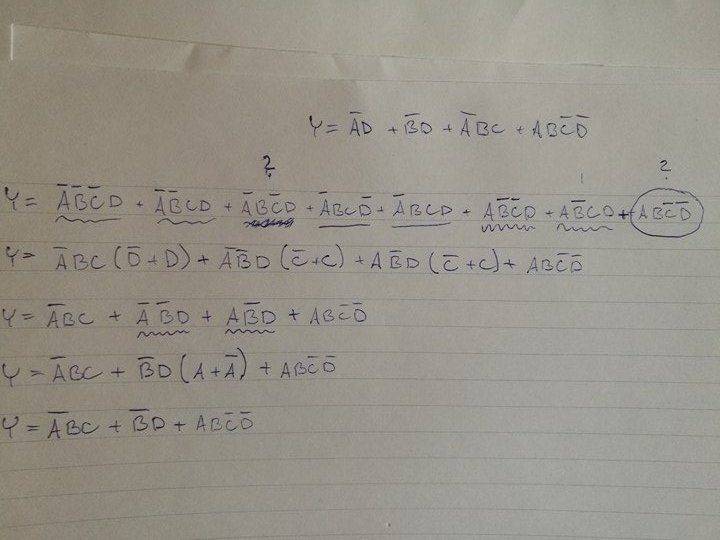 Y = A̅D + B̅D + A̅BC + ABC̅D̅
? ?
Y = A̅B̅C̅D + A̅B̅CD + A̅BC̅D + A̅BCD̅ + A̅BCD + AB̅C̅D + AB̅CD + ABC̅D̅
Y = A̅BC(D̅+D) + A̅B̅D(C̅+C) + AB̅D(C̅+C) + ABC̅D̅
Y = A̅BC + A̅B̅D + AB̅D + ABC̅D̅
Y = A̅BC + B̅D(A+A̅) + ABC̅D̅
Y = A̅BC + B̅D + ABC̅D̅